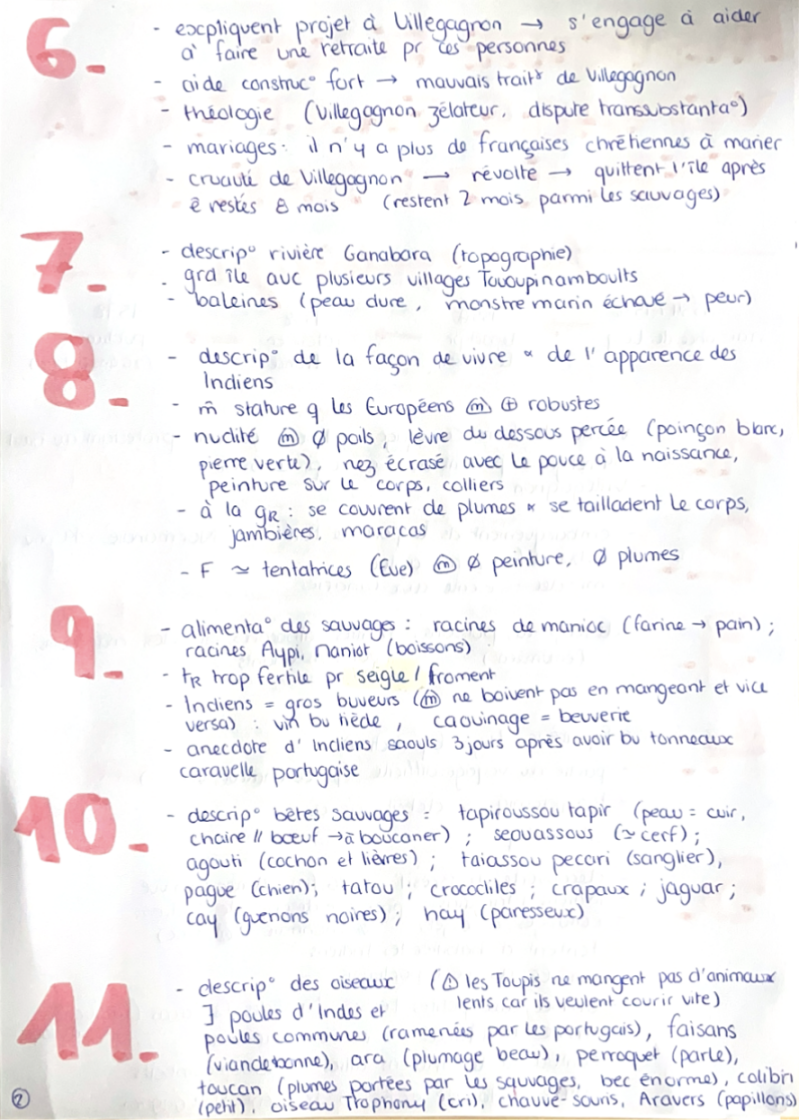 6.
- expliquent projet à Villegagnon → s'engage à aider
à faire une retraite pr ces personnes
- aide construc° fort → mauvais traitᵗˢ de Villegagnon
- théologie (Villegagnon zélateur, dispute transsubstanta°)
- mariages: il n'y a plus de françaises chrétiennes à marier
- cruauté de Villegagnon → révolte → quittent l'île après
ê restés 8 mois (restent 2 mois parmi les sauvages)
7.
- descrip° rivière Ganabara (topographie)
- grd île avc plusieurs villages Tououpinamboults
- baleines (peau dure, monstre marin échoué → peur)
8.
- descrip° de la façon de vivre & de l'apparence des
Indiens
- m̂ stature q les Européens ⓜ ⊕ robustes
- nudité ⓜ Ø poils, lèvre du dessous percée (poinçon blanc,
pierre verte), nez écrasé avec le pouce à la naissance,
peinture sur le corps, colliers
- à la gR : se couvrent de plumes & se tailladent le corps,
jambières, maracas
- F ≃ tentatrices (Eve) ⓜ Ø peinture, Ø plumes
9.
- alimenta° des sauvages : racines de manioc (farine → pain) ;
racines Aypi, maniot (boissons)
- tR trop fertile pr seigle / froment
- Indiens = gros buveurs (ⓜ ne boivent pas en mangeant et vice
versa) : vin bu tiède, caouinage = beuverie
- anecdote d'Indiens saouls 3 jours après avoir bu tonneaux
caravelle portugaise
10.
- descrip° bêtes sauvages : tapiroussou tapir (peau = cuir,
chaire // bœuf → à boucaner) ; seouassous (≃ cerf) ;
agouti (cochon et lièvres) ; taiassou pecari (sanglier),
pague (chien) ; tatou ; crocodiles ; crapaux ; jaguar ;
cay (guenons noires) ; hay (paresseux)
11.
- descrip° des oiseaux (⚠ les Toupis ne mangent pas d'animaux
lents car ils veulent courir vite)
∃ poules d'Indes et
poules communes (ramenées par les portugais), faisans
(viande bonne), ara (plumage beau), perroquet (parle),
toucan (plumes portées par les sauvages, bec énorme), colibri
(petit), oiseau Trophony (cri), chauve-souris, Aravers (papillons)
②